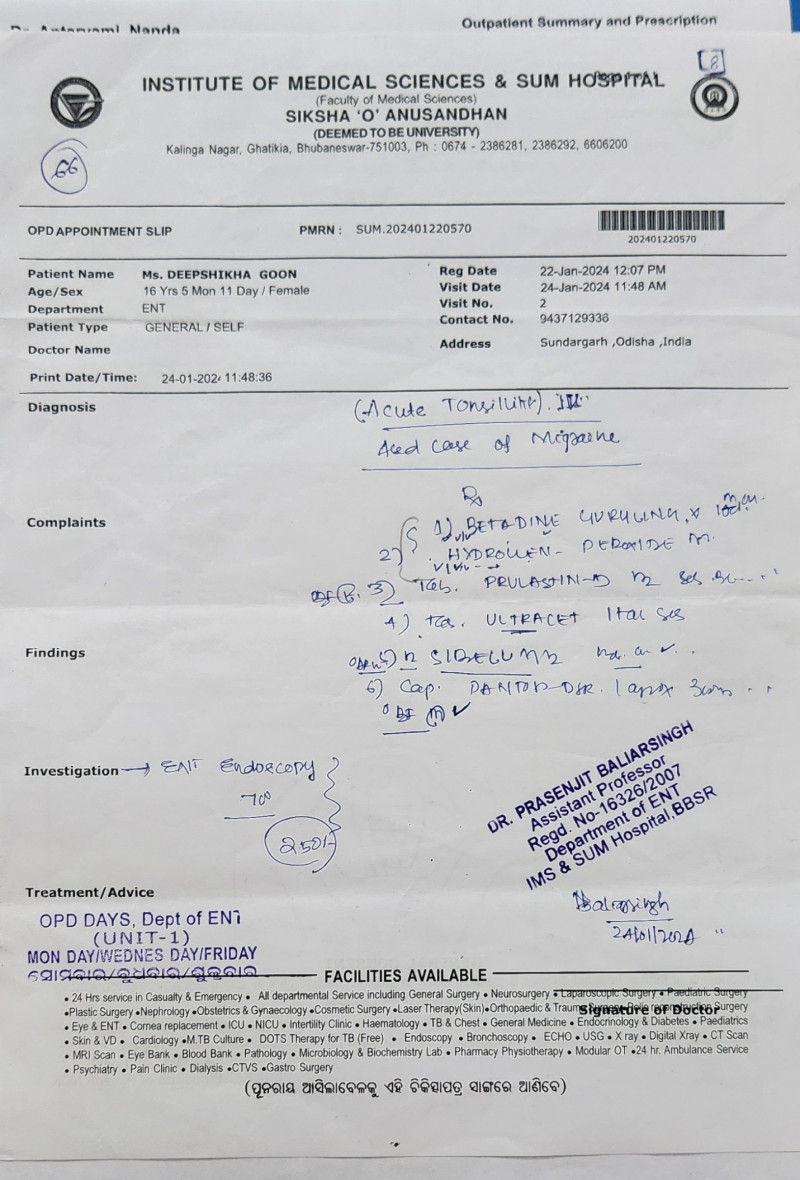 Outpatient Summary and Prescription
[8]
INSTITUTE OF MEDICAL SCIENCES & SUM HOSPITAL
(Faculty of Medical Sciences)
SIKSHA 'O' ANUSANDHAN
(DEEMED TO BE UNIVERSITY)
Kalinga Nagar, Ghatikia, Bhubaneswar-751003, Ph : 0674 - 2386281, 2386292, 6606200
66
OPD APPOINTMENT SLIP PMRN : SUM.202401220570
202401220570
Patient Name Ms. DEEPSHIKHA GOON Reg Date 22-Jan-2024 12:07 PM
Age/Sex 16 Yrs 5 Mon 11 Day / Female Visit Date 24-Jan-2024 11:48 AM
Department ENT Visit No. 2
Patient Type GENERAL / SELF Contact No. 9437129336
Doctor Name Address Sundargarh ,Odisha ,India
Print Date/Time: 24-01-2024 11:48:36
Diagnosis (Acute Tonsillitis).
case of Migraine
Rx
Complaints 1) BETADINE
2) PEROXIDE
3) Tab.
4) Tab. ULTRACET 1 tab
Findings
6) Cap. DSR. 1
Investigation → ENT Endoscopy
70°
250/-
DR. PRASENJIT BALIARSINGH
Assistant Professor
Regd. No-16326/2007
Department of ENT
IMS & SUM Hospital, BBSR
Baliarsingh
24/01/2024
Treatment/Advice
OPD DAYS, Dept of ENT
(UNIT-1)
MON DAY/WEDNES DAY/FRIDAY
ସୋମବାର/ବୁଧବାର/ଶୁକ୍ରବାର
FACILITIES AVAILABLE
• 24 Hrs service in Casualty & Emergency • All departmental Service including General Surgery • Neurosurgery • Laparoscopic Surgery • Paediatric Surgery
•Plastic Surgery •Nephrology •Obstetrics & Gynaecology •Cosmetic Surgery •Laser Therapy(Skin)•Orthopaedic & Trauma Surgery
Signature of Doctor
• Eye & ENT • Cornea replacement • ICU • NICU • Intertility Clinic • Haematology • TB & Chest • General Medicine • Endocrinology & Diabetes • Paediatrics
• Skin & VD • Cardiology •M.TB Culture • DOTS Therapy for TB (Free) • Endoscopy • Bronchoscopy • ECHO • USG • X ray • Digital Xray • CT Scan
• MRI Scan • Eye Bank • Blood Bank • Pathology • Microbiology & Biochemistry Lab • Pharmacy Physiotherapy • Modular OT •24 hr. Ambulance Service
• Psychiatry • Pain Clinic • Dialysis •CTVS •Gastro Surgery
(ପୂନରାୟ ଆସିଲାବେଳକୁ ଏହି ଚିକିତ୍ସାପତ୍ର ସାଙ୍ଗରେ ଆଣିବେ)